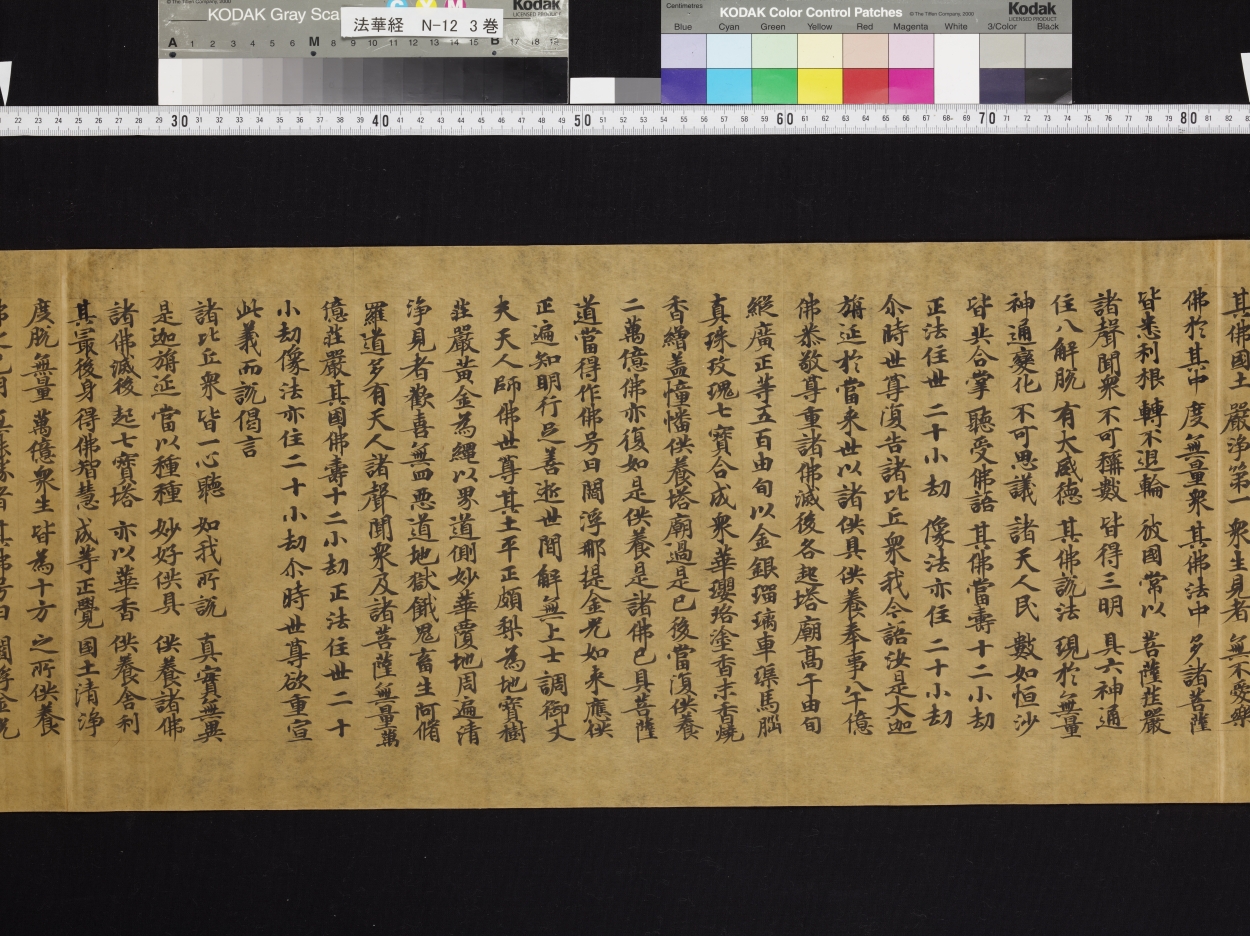 © The Tiffen Company, 2000
KODAK Gray Sca
C Y M
Kodak
LICENSED PRODUCT
法華経 N-12 3巻
A 1 2 3 4 5 6 M 8 9 10 11 12 13 14 15 B 17 18 19
Centimetres
KODAK Color Control Patches
© The Tiffen Company, 2000
Kodak
LICENSED PRODUCT
Blue Cyan Green Yellow Red Magenta White 3/Color Black
22 23 24 25 26 27 28 29 30 31 32 33 34 35 36 37 38 39 40 41 42 43 44 45 46 47 48 49 50 51 52 53 54 55 56 57 58 59 60 61 62 63 64 65 66 67 68 69 70 71 72 73 74 75 76 77 78 79 80 81 82
其佛國土 嚴淨第一 衆生見者 無不愛樂
佛於其中 度無量衆 其佛法中 多諸菩薩
皆悉利根 轉不退輪 彼國常以 菩薩莊嚴
諸聲聞衆 不可稱數 皆得三明 具六神通
住八解脫 有大威德 其佛說法 現於無量
神通變化 不可思議 諸天人民 數如恒沙
皆共合掌 聽受佛語 其佛當壽 十二小劫
正法住世 二十小劫 像法亦住 二十小劫
尒時世尊復告諸比丘衆我今語汝是大迦
旃延於當来世以諸供具供養奉事八千億
佛恭敬尊重諸佛滅後各起塔廟高千由旬
縱廣正等五百由旬以金銀瑠璃車𤦲馬腦
真珠玫瑰七寶合成衆華瓔珞塗香末香燒
香繒盖幢幡供養塔廟過是已後當復供養
二萬億佛亦復如是供養是諸佛已具菩薩
道當得作佛号曰閻浮那提金光如来應供
正遍知明行足善逝世間解無上士調御丈
夫天人師佛世尊其土平正頗梨為地寶樹
莊嚴黃金為繩以界道側妙華覆地周遍清
淨見者歡喜無四惡道地獄餓鬼畜生阿脩
羅道多有天人諸聲聞衆及諸菩薩無量萬
億莊嚴其國佛壽十二小劫正法住世二十
小劫像法亦住二十小劫尒時世尊欲重宣
此義而說偈言
諸比丘衆 皆一心聽 如我所說 真實無異
是迦旃延 當以種種 妙好供具 供養諸佛
諸佛滅後 起七寶塔 亦以華香 供養舍利
其冣後身 得佛智慧 成等正覺 國土清淨
度脫無量 萬億衆生 皆為十方 之所供養